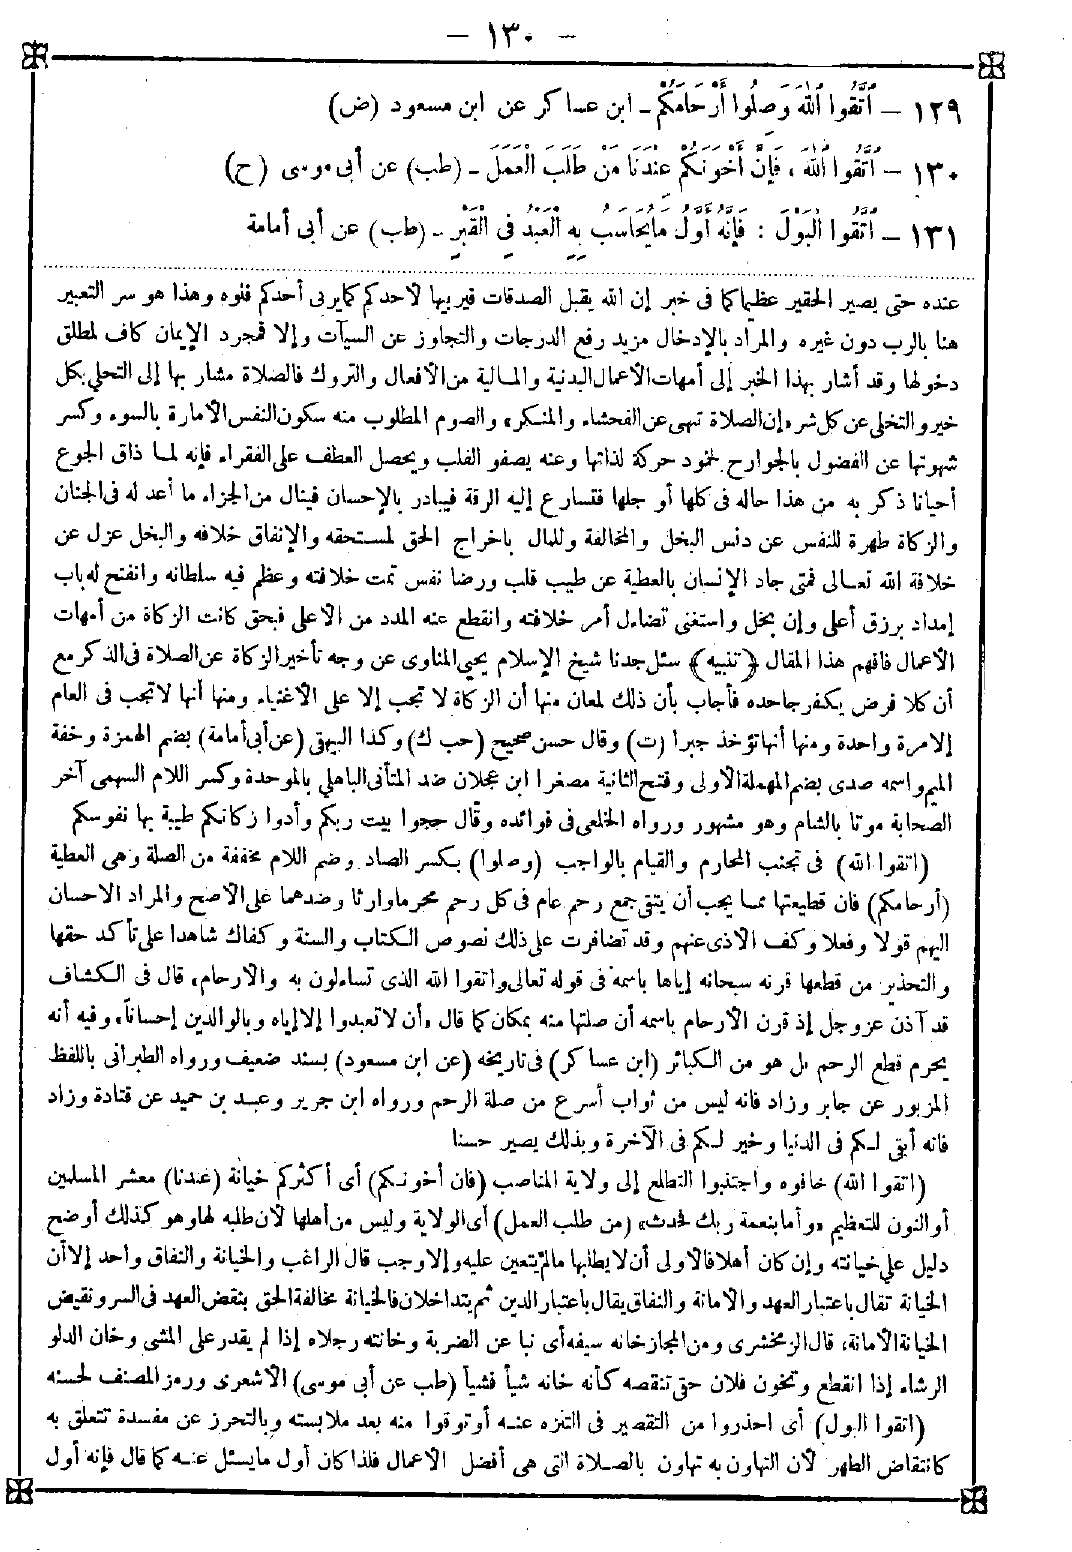 – ١٣٠ –
١٢٩ – اَتَّقُوا اَللهَ وَصِلُوا أَرْحَامَكُمْ ـ ابن عساكر عن ابن مسعود (ض)
١٣٠ – اَتَّقُوا اَللهَ ، فَإِنَّ أَخْوَنَكُمْ عِنْدَنَا مَنْ طَلَبَ الْعَمَلَ ـ (طب) عن أبى موسى (ح)
١٣١ – اَتَّقُوا الْبَوْلَ : فَإِنَّهُ أَوَّلُ مَايُحَاسَبُ بِهِ الْعَبْدُ فِى الْقَبْرِ ـ (طب) عن أبى أمامة
عنده حتى يصير الحقير عظيما كما فى خبر إن الله يقبل الصدقات فيربيها لأحدكم كما يربى أحدكم فلوه وهذا هو سر التعبير
هنا بالرب دون غيره والمراد بالإدخال مزيد رفع الدرجات والتجاوز عن السيآت وإلا فمجرد الإيمان كاف لمطلق
دخولها وقد أشار بهذا الخبر إلى أمهات الأعمال البدنية والمالية من الأفعال والتروك فالصلاة مشار بها إلى التحلى بكل
خير والتخلى عن كل شر «إن الصلاة تنهى عن الفحشاء والمنكر» والصوم المطلوب منه سكون النفس الأمارة بالسوء وكسر
شهوتها عن الفضول بالجوارح لخمود حركة لذاتها وعنه يصفو القلب ويحصل العطف على الفقراء فإنه لما ذاق الجوع
أحيانا ذكر به من هذا حاله فى كلها أو جلها فتسارع إليه الرقة فيبادر بالإحسان فينال من الجزاء ما أعد له فى الجنان
والزكاة طهرة للنفس عن دنس البخل والمخالفة وللمال باخراج الحق لمستحقه والإنفاق خلافه والبخل عزل عن
خلافة الله تعالى فمتى جاد الإنسان بالعطية عن طيب قلب ورضا نفس تمت خلافته وعظم فيه سلطانه وانفتح له باب
إمداد برزق أعلى وإن بخل واستغنى تضاءل أمر خلافته وانقطع عنه المدد من الأعلى فبحق كانت الزكاة من أمهات
الأعمال فافهم هذا المقال ﴿تنبيه﴾ سئل جدنا شيخ الإسلام يحيى المناوى عن وجه تأخير الزكاة عن الصلاة فى الذكر مع
أن كلا فرض يكفر جاحده فأجاب بأن ذلك لمعان منها أن الزكاة لا تجب إلا على الأغنياء ومنها أنها لا تجب فى العام
إلا مرة واحدة ومنها أنها تؤخذ جبرا (ت) وقال حسن صحيح (حب ك) وكذا البيهقى (عن أبى أمامة) بضم الهمزة وخفة
الميم واسمه صدى بضم المهملة الأولى وفتح الثانية مصغرا ابن عجلان ضد المتأنى الباهلي بالموحدة وكسر اللام السهمى آخر
الصحابة موتا بالشام وهو مشهور ورواه الخلعى فى فوائده وقال حجوا بيت ربكم وأدوا زكاتكم طيبة بها نفوسكم
(اتقوا الله) فى تجنب المحارم والقيام بالواجب (وصلوا) بكسر الصاد وضم اللام مخففة من الصلة وهى العطية
(أرحامكم) فان قطيعتها مما يجب أن يتقى جمع رحم عام فى كل رحم محرما وارثا وضدهما على الأصح والمراد الاحسان
اليهم قولا وفعلا وكف الأذى عنهم وقد تضافرت على ذلك نصوص الكتاب والسنة وكفاك شاهدا على تأكد حقها
والتحذير من قطعها قرنه سبحانه إياها باسمه فى قوله تعالى واتقوا الله الذى تساءلون به والأرحام، قال فى الكشاف
قد آذن عز وجل إذ قرن الأرحام باسمه أن صلتها منه بمكان كما قال «أن لا تعبدوا إلا إياه وبالوالدين إحساناً» وفيه أنه
يحرم قطع الرحم بل هو من الكبائر (ابن عساكر) فى تاريخه (عن ابن مسعود) بسند ضعيف ورواه الطبرانى باللفظ
المزبور عن جابر وزاد فانه ليس من ثواب أسرع من صلة الرحم ورواه ابن جرير وعبد بن حميد عن قتادة وزاد
فانه أبقى لكم فى الدنيا وخير لكم فى الآخرة وبذلك يصير حسنا
(اتقوا الله) خافوه واجتنبوا التطلع إلى ولاية المناصب (فان أخونكم) أى أكثركم خيانة (عندنا) معشر المسلمين
أو النون للتعظيم «وأما بنعمة ربك فحدث» (من طلب العمل) أى الولاية وليس من أهلها لأن طلبه لها وهو كذلك أوضح
دليل على خيانته وإن كان أهلا فالأولى أن لا يطلبها مالم يتعين عليه وإلا وجب قال الراغب والخيانة والنفاق واحد إلا أن
الخيانة تقال باعتبار العهد والأمانة والنفاق يقال باعتبار الدين ثم يتداخلان فالخيانة مخالفة الحق بنقض العهد فى السر ونقيض
الخيانة الأمانة، قال الزمخشرى ومن المجاز خانه سيفه أى نبا عن الضربة وخانته رجلاه إذا لم يقدر على المشى وخان الدلو
الرشاء إذا انقطع وتخون فلان حتى تنقصه كأنه خانه شيأ فشيأ (طب عن أبى موسى) الأشعرى ورمز المصنف لحسنه
(اتقوا البول) أى احذروا من التقصير فى التنزه عنه أو توقوا منه بعد ملابسته وبالتحرز عن مفسدة تتعلق به
كانتقاض الطهر لأن التهاون به تهاون بالصلاة التى هى أفضل الأعمال فلذا كان أول ما يسئل عنه كما قال فإنه أول